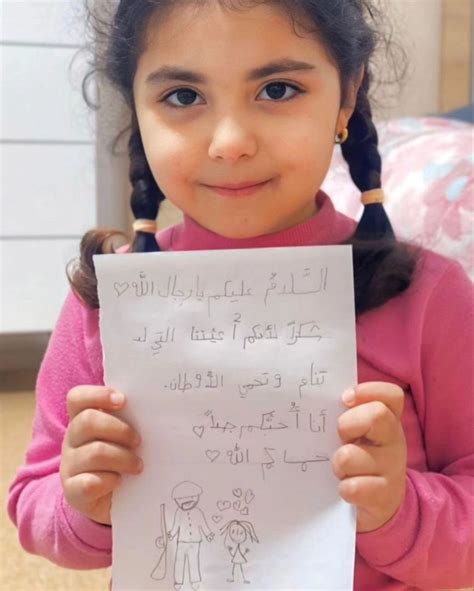 السّلامُ عليكم يا رجال الله
شكراً لأنكم أعيننا التي لا
تنام و تحمي الأوطان.
أنا أُحبُّكم جداً
حماكم الله